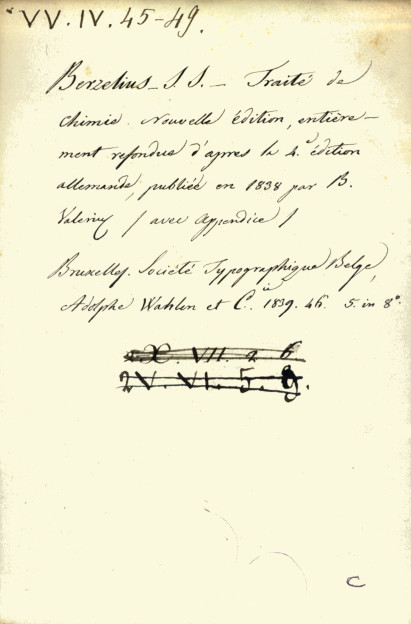 VV. IV. 45-49.
Berzelius - J. J. - Traité de
chimie. Nouvelle édition, entière-
ment refondue d'apres la 4.e édition
allemande, publiée en 1838 par B.
Valerius / avec Appendice /
Bruxelles. Société Typographique Belge,
Adolphe Wahlen et C.ie 1839. 46. 5. in 8°.
X. VII. 2 6
2V. VI. 5. 9.
C